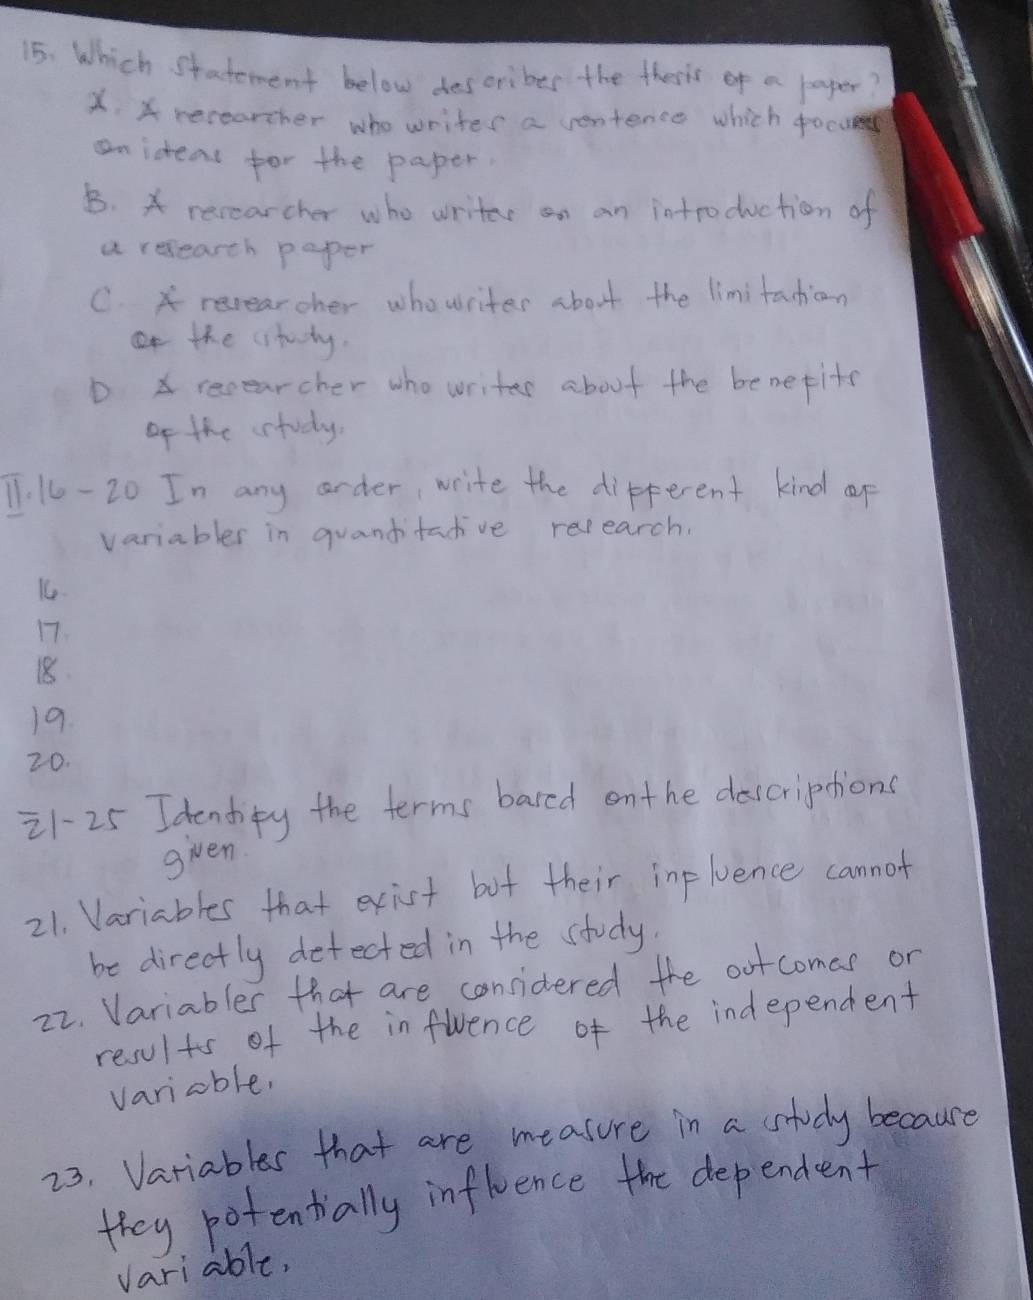 15. Which statement below describes the thesis of a paper?
X. A researcher who writes a sentence which focuses
on ideas for the paper.
B. A researcher who writes on an introduction of
a research paper
C. A researcher who writes about the limitation
of the study.
D A researcher who writes about the benefits
of the study.
II. 16-20 In any order, write the different kind of
variables in quantitative research.
16.
17.
18.
19.
20.
21-25 Identify the terms based on the descriptions
given.
21. Variables that exist but their influence cannot
be directly detected in the study.
22. Variables that are considered the outcomes or
results of the influence of the independent
variable.
23. Variables that are measure in a study because
they potentially influence the dependent
variable.